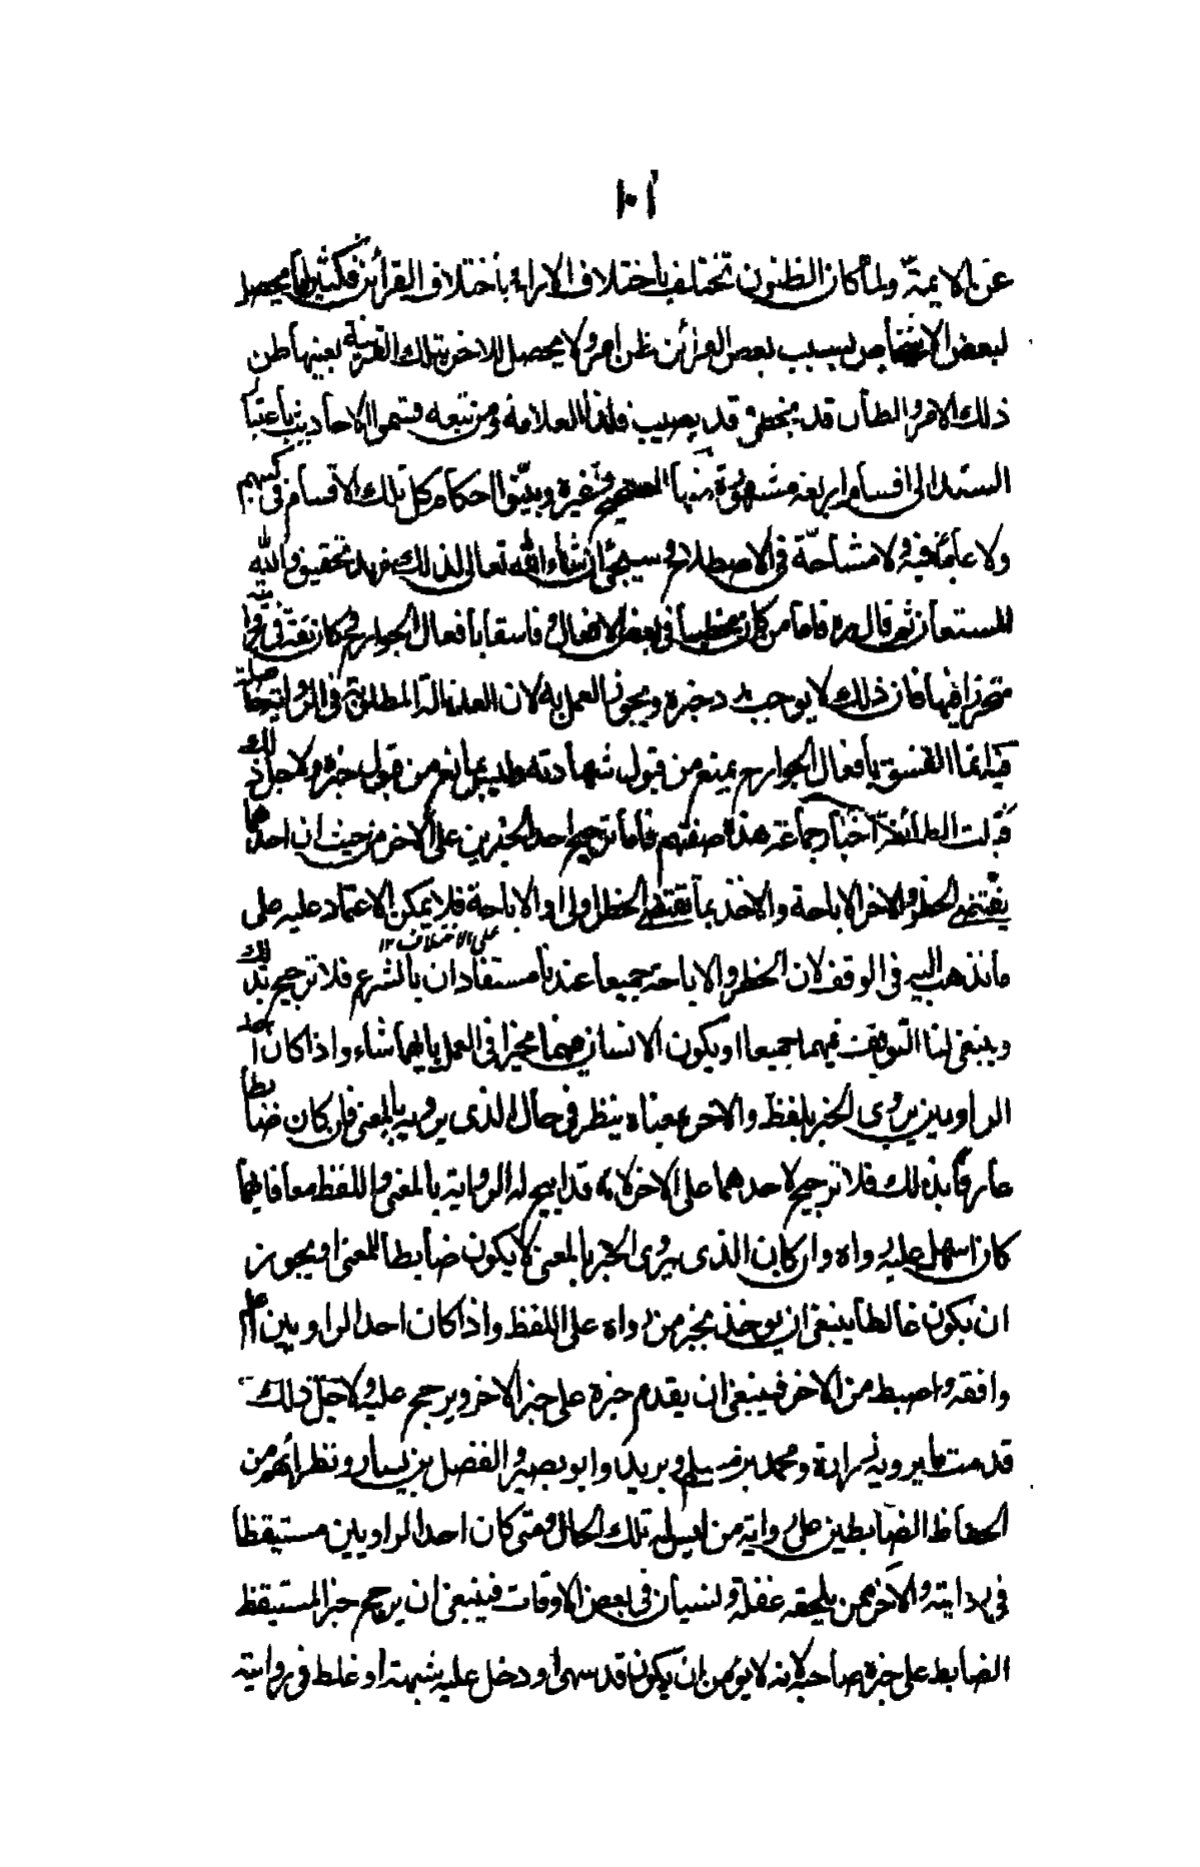 ١٠١
عن الايمة ولما كان الظنون تختلف باختلاف الاراء وباختلاف القرائن فكثيرا ما يحصل
لبعض الاشخاص بسبب بعض القرائن ظن امر ولا يحصل للاخر بتلك القرينة بعينها ظن
ذلك الامر والظان قد يخطئ وقد يصيب فلهذا العلامة ومن تبعه قسموا الاحاديث باعتبار
السند الى اقسام اربعة مشهورة منها الصحيح وغيره وبينوا احكام كل تلك الاقسام في كتبهم
ولا عليه فيه ولا مشاحة في الاصطلاح وسيجئ ان شاء الله تعالى لذلك مزيد تحقيق والله
المستعان ثم قال ره فاما من كان مخطيا في بعض الافعال او فاسقا بافعال الجوارح وكان ثقة في روايته
متحرزا فيها فان ذلك لا يوجب رد خبره ويجوز العمل به لان العدالة المطلوبة في الرواية حاصلة
فيه انما الفسق بافعال الجوارح يمنع من قبول شهادته وليس بمانع من قبول خبره ولاجل ذلك
قبلت الطائفة اخبار جماعة هذه صفتهم فاما ترجيح احد الخبرين على الاخر من حيث ان احدهما
يقتضي الحظر والاخر الاباحة والاخذ بما يقتضي الحظر اولى او الاباحة فلا يمكن الاعتماد عليه على
ما نذهب اليه في الوقف لان الحظر والاباحة جميعا عندنا مستفادان بالشرع فلا ترجيح بذلك
على الاختلاف ١٢
وينبغي لنا التوقف فيهما جميعا او يكون الانسان فيهما مخيرا في العمل بايهما شاء واذا كان احد
الراويين يروى الخبر بلفظه والاخر بمعناه ينظر في حال الذى يرويه بالمعنى فان كان ضابطا
عارفا بذلك فلا ترجيح لاحدهما على الاخر لانه قد ابيح له الرواية بالمعنى واللفظ معا فايهما
كان اسهل عليه رواه وان كان الذى يروى الخبر بالمعنى لا يكون ضابطا للمعنى او يجوز
ان يكون غالطا ينبغي ان يوخذ بخبر من رواه على اللفظ واذا كان احد الراويين اعلم
وافقه واضبط من الاخر فينبغي ان يقدم خبره على خبر الاخر ويرجح عليه ولاجل ذلك
قدمت ما يرويه زرارة ومحمد بن مسلم وبريد وابو بصير والفضل بن يسار ونظرائهم من
الحفاظ الضابطين على رواية من ليس له تلك الحال ومتى كان احد الراويين مستيقظا
في روايته والاخر ممن يلحقه غفلة ونسيان في بعض الاوقات فينبغي ان يرجح خبر المستيقظ
الضابط على خبر صاحبه لانه لا يؤمن ان يكون قد سهى او دخل عليه شبهة او غلط في روايته